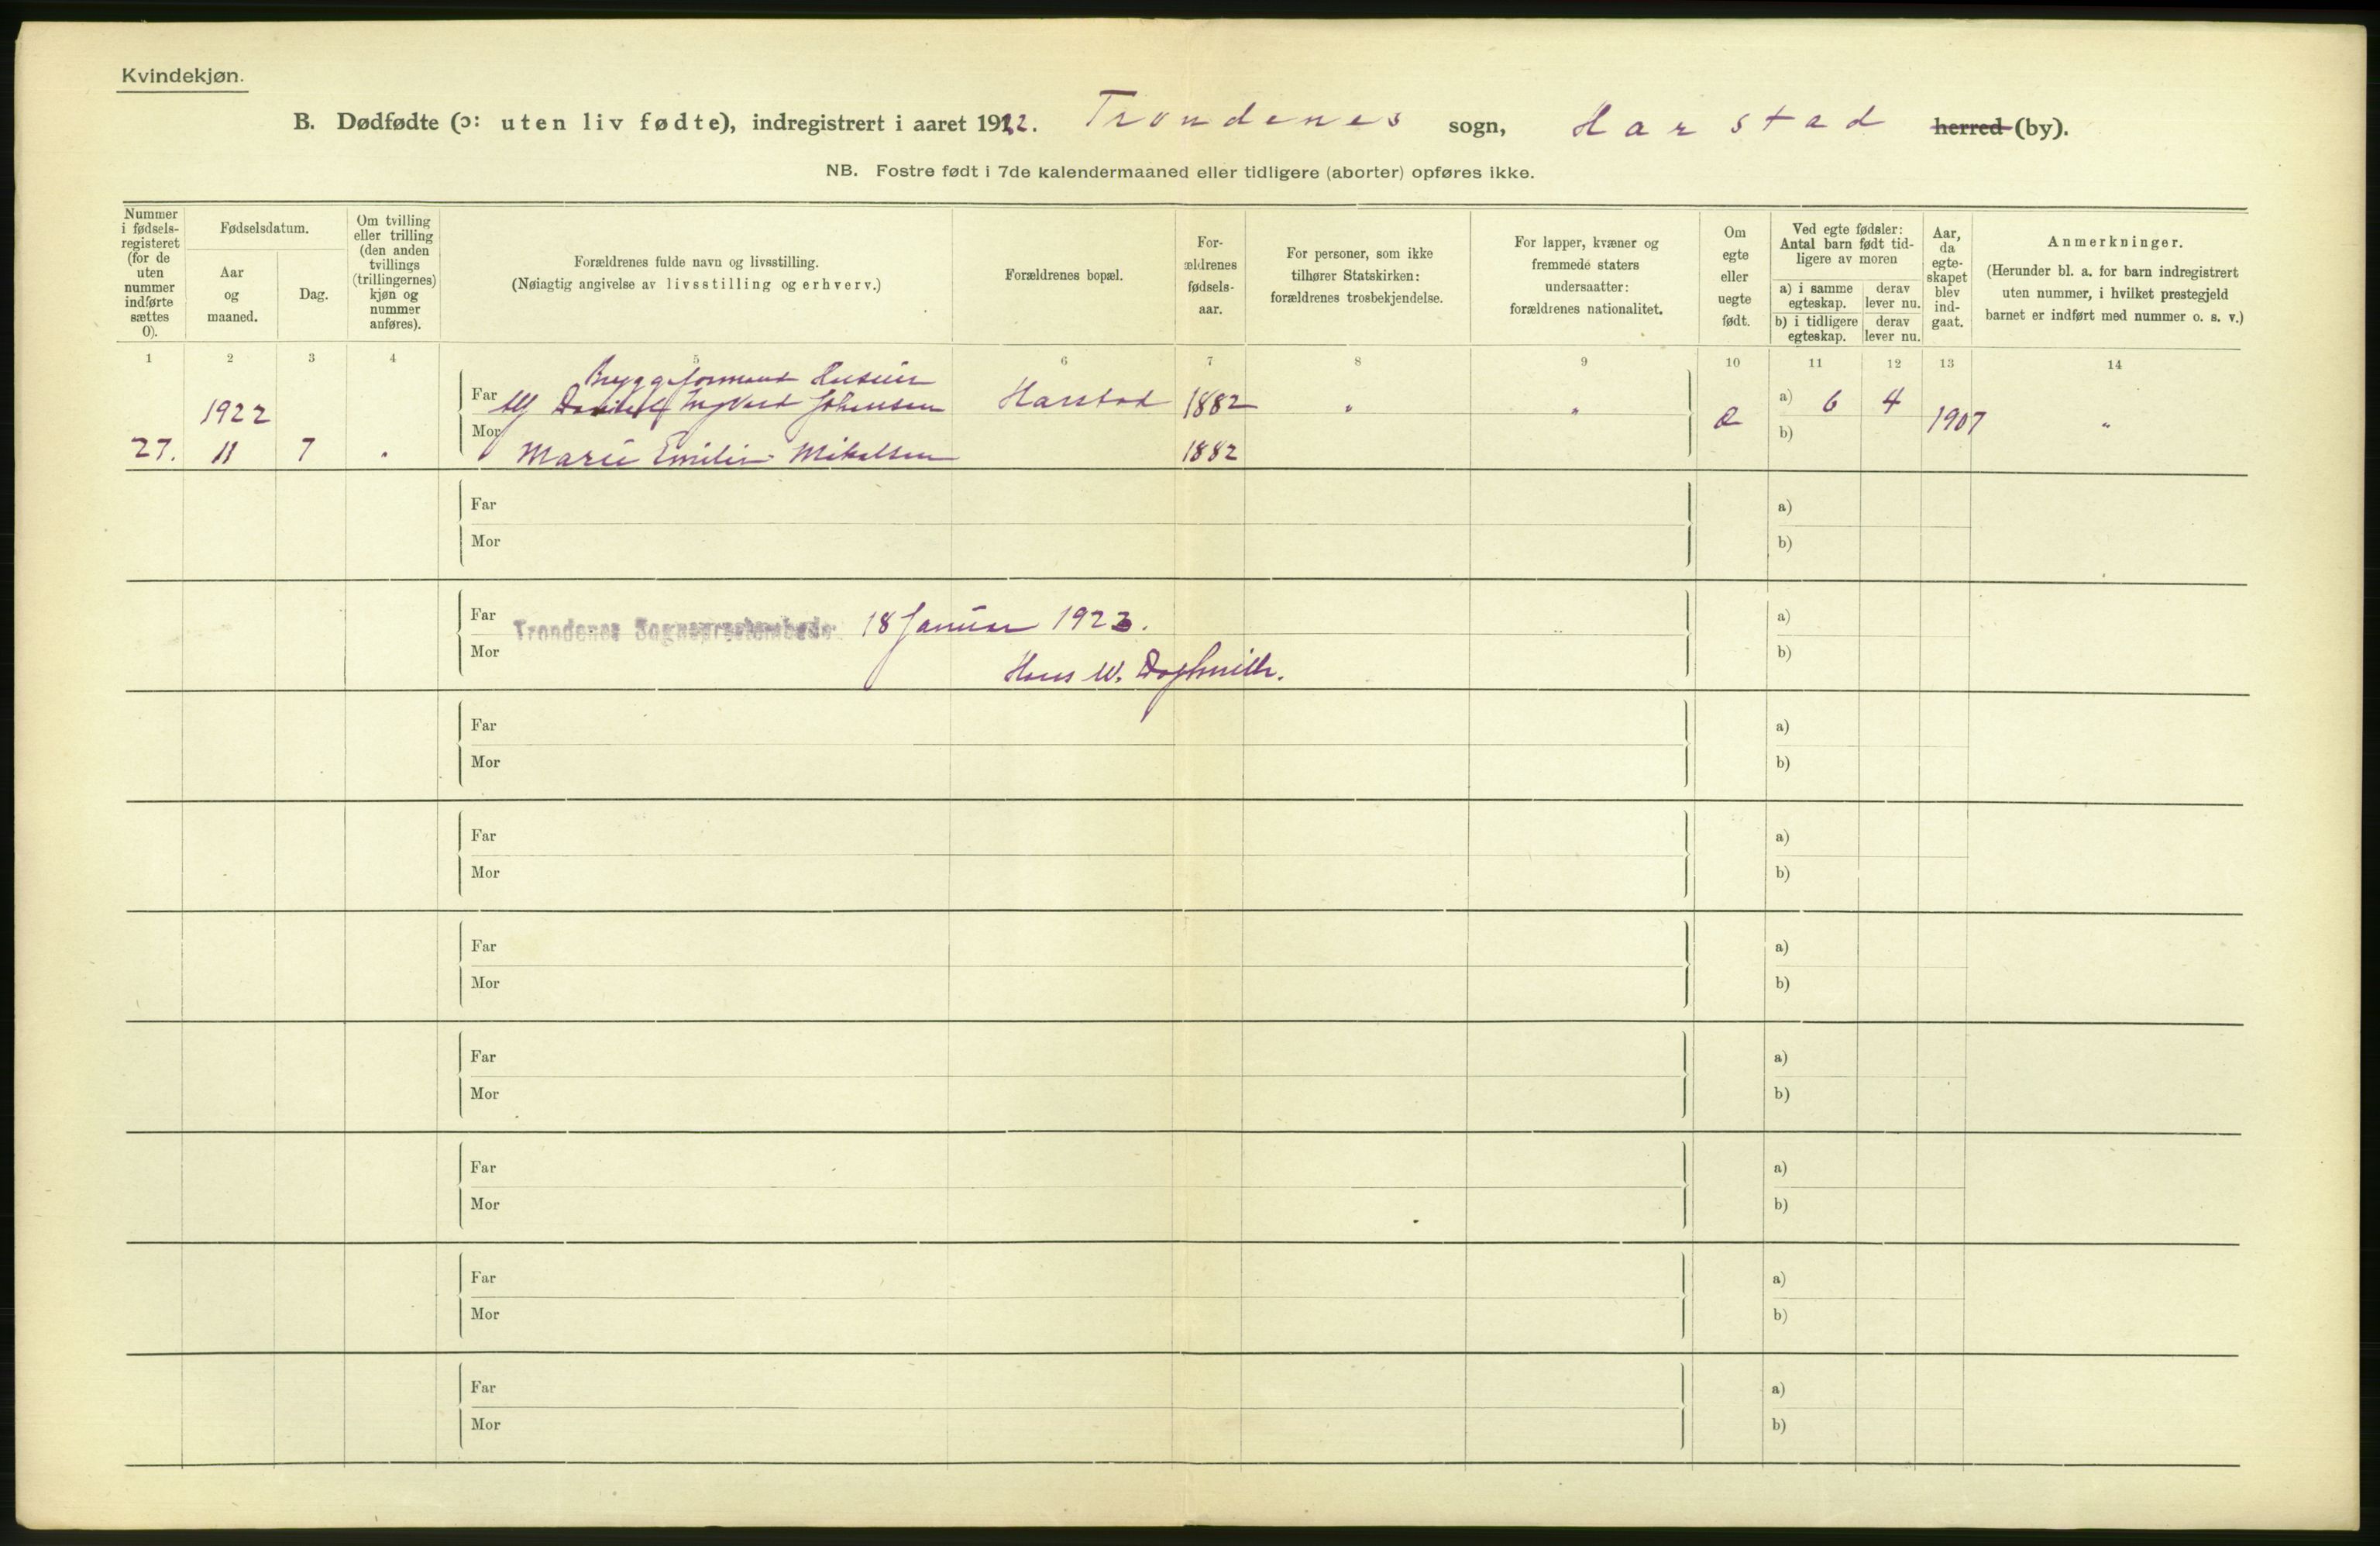 Kvindekjøn.
B. Dødfødte (ɔ: uten liv fødte), indregistrert i aaret 1922. Trondenes sogn, Harstad herred (by).
NB. Fostre født i 7de kalendermaaned eller tidligere (aborter) opføres ikke.
Nummer i fødsels-registeret (for de uten nummer indførte sættes 0).
Fødselsdatum.
Aar og maaned.
Dag.
Om tvilling eller trilling (den anden tvillings (trillingernes) kjøn og nummer anføres).
Forældrenes fulde navn og livsstilling.
(Nøiagtig angivelse av livsstilling og erhverv.)
Forældrenes bopæl.
For-ældrenes fødsels-aar.
For personer, som ikke tilhører Statskirken: forældrenes trosbekjendelse.
For lapper, kvæner og fremmede staters undersaatter: forældrenes nationalitet.
Om egte eller uegte født.
Ved egte fødsler: Antal barn født tid-ligere av moren
a) i samme egteskap.
derav lever nu.
b) i tidligere egteskap.
derav lever nu.
Aar, da egte-skapet blev ind-gaat.
Anmerkninger.
(Herunder bl. a. for barn indregistrert uten nummer, i hvilket prestegjeld barnet er indført med nummer o. s. v.)
1 2 3 4 5 6 7 8 9 10 11 12 13 14
Bryggeformand
1922 Far Ingvart Johansen Harstad 1882 " " a) 6 4 1907 "
27. 11 7 " Mor Marie Emilie Mikalsen 1882 b)
Far a)
Mor b)
Far Trondenes Sogneprestembede 18 Januar 1923. a)
Mor Hans W. b)
Far a)
Mor b)
Far a)
Mor b)
Far a)
Mor b)
Far a)
Mor b)
Far a)
Mor b)
Far a)
Mor b)
Far a)
Mor b)